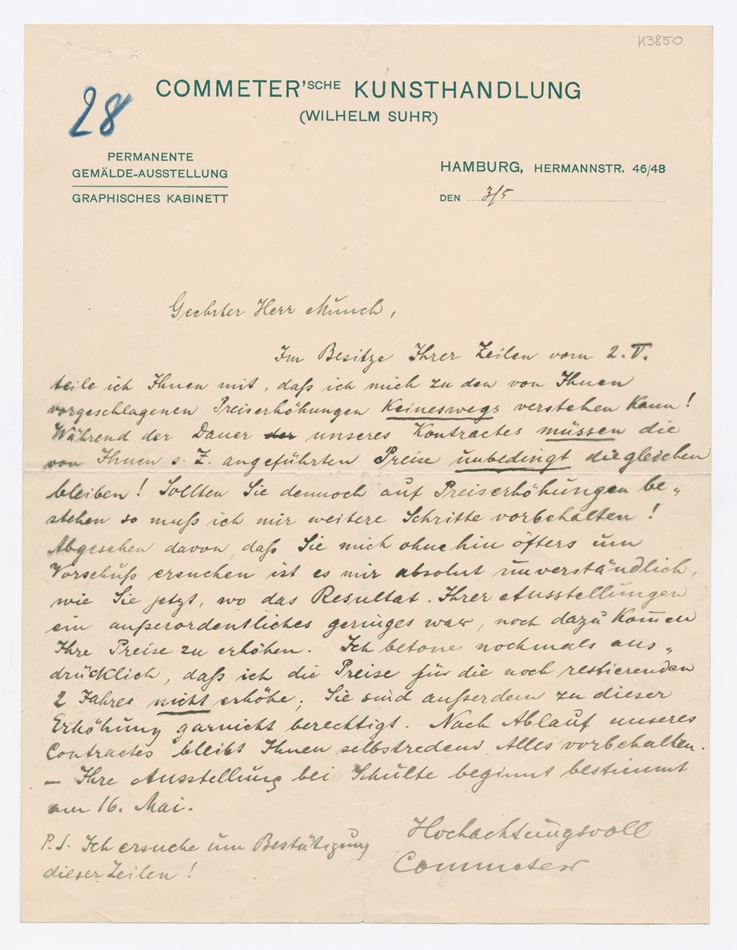 K3850
28
COMMETER'SCHE KUNSTHANDLUNG
(WILHELM SUHR)
PERMANENTE
GEMÄLDE-AUSSTELLUNG
GRAPHISCHES KABINETT
HAMBURG, HERMANNSTR. 46/48
DEN 3/5
Geehrter Herr Munch,
Im Besitze Ihrer Zeilen vom 2. V.
teile ich Ihnen mit, daß ich mich zu den von Ihnen
vorgeschlagenen Preiserhöhungen keineswegs verstehen kann!
Während der Dauer der unseres Kontractes müssen die
von Ihnen s. Z. angeführten Preise unbedingt diegleichen
bleiben! Sollten Sie dennoch auf Preiserhöhungen be„
stehen so muß ich mir weitere Schritte vorbehalten!
Abgesehen davon, daß Sie mich ohnehin öfters um
Vorschuß ersuchen ist es mir absolut unverständlich,
wie Sie jetzt, wo das Resultat Ihrer Ausstellungen
ein außerordentliches geringes war, noch dazu kom̄en
Ihre Preise zu erhöhen. Ich betone nochmals aus„
drücklich, daß ich die Preise für die noch restierenden
2 Jahre nicht erhöhe; Sie sind außerdem zu dieser
Erhöhung garnicht berechtigt. Nach Ablauf unseres
Contractes bleibt Ihnen selbstredend Alles vorbehalten.
— Ihre Ausstellung bei Schulte beginnt bestimmt
am 16. Mai.
Hochachtungsvoll
Commeter
P.S. Ich ersuche um Bestätigung
dieser Zeilen!